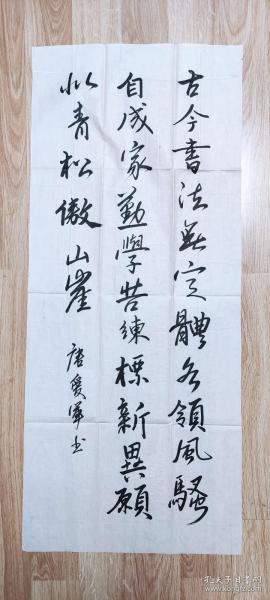 古今書法無定體各領風騷
自成家勤學苦練標新異願
似青松傲山崖
唐爱军书
孔夫子旧书网